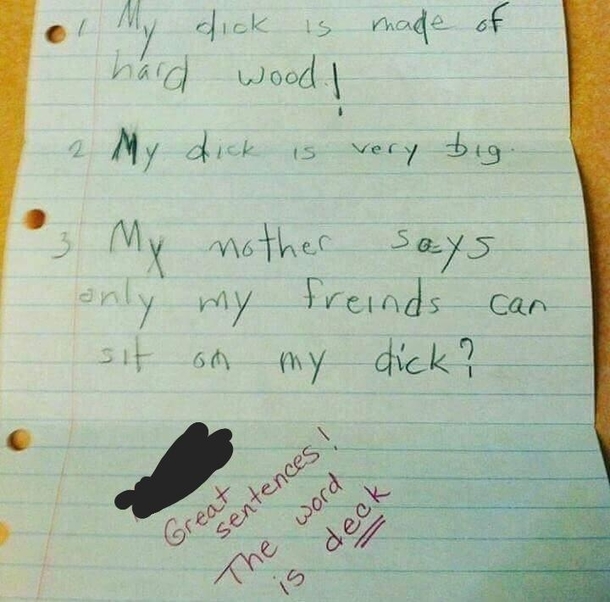 1 My dick is made of
hard wood!
2 My dick is very big.
3 My mother says
only my freinds can
sit on my dick?
Great
sentences!
The word
is deck